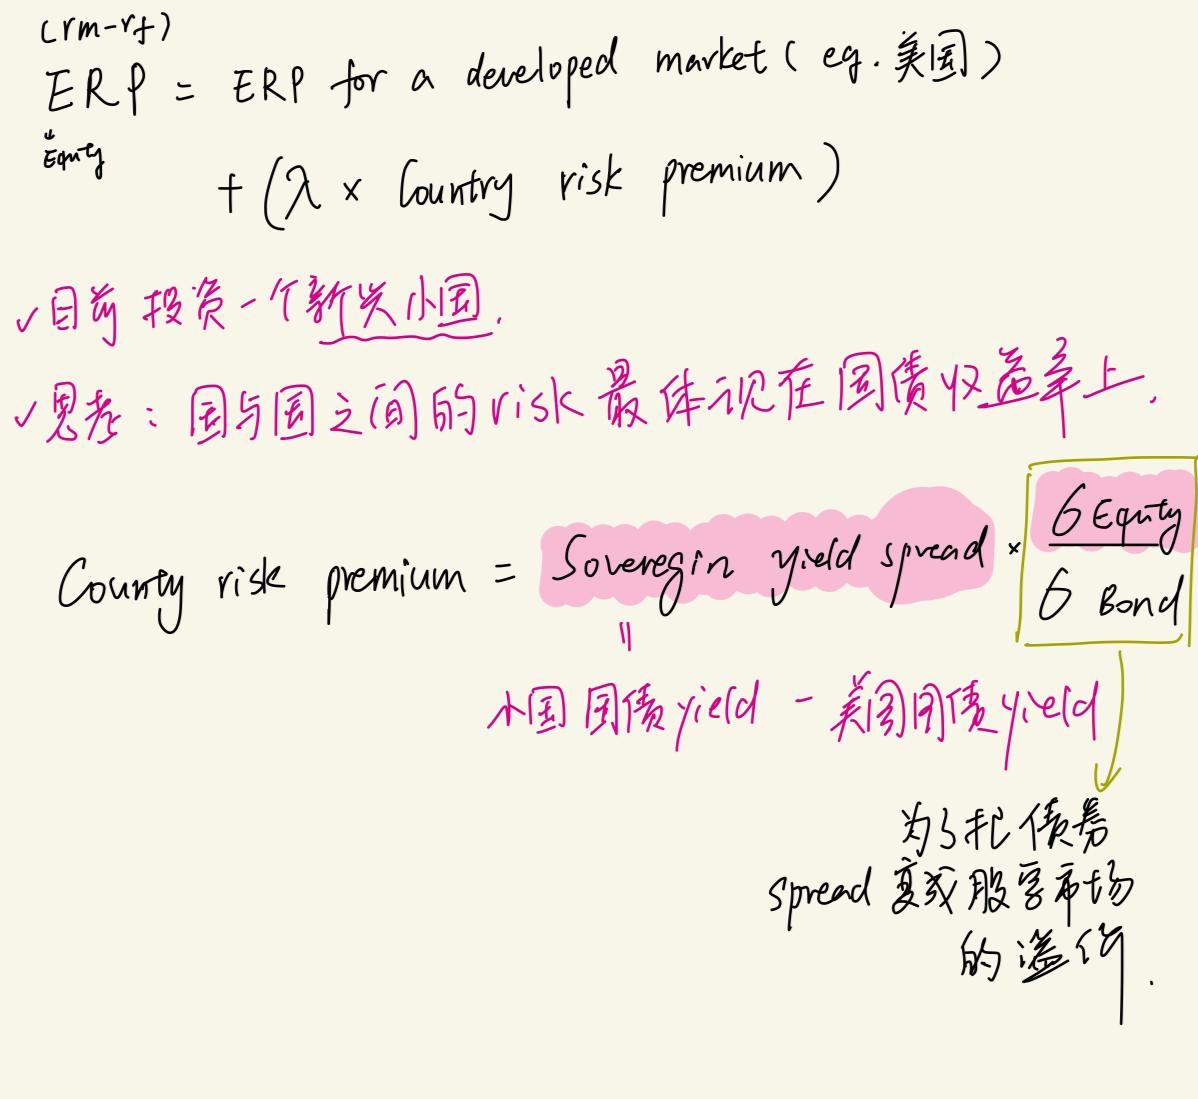 (rm-rf)
ERP = ERP for a developed market ( eg. 美国 )
↓
Equity
+ ( λ × Country risk premium )
✓目前 投资一个新兴小国.
✓思考: 国与国之间的risk 最体现在国债收益率上.
Country risk premium = Soveregin yield spread × σ Equity
σ Bond
=
小国 国债yield - 美国国债yield
为了把债券
spread 变成 股票市场
的溢价.